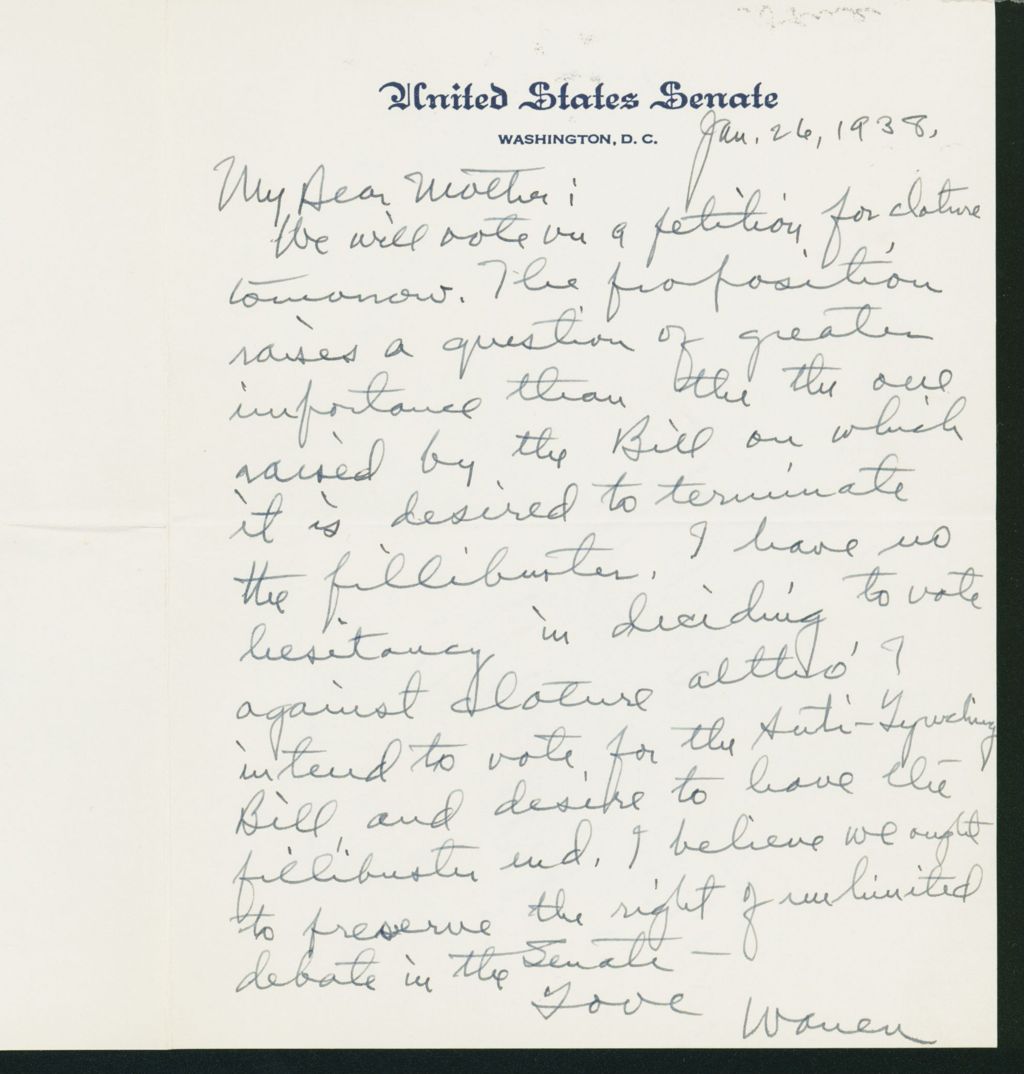 United States Senate
WASHINGTON, D. C.
Jan. 26, 1938.
My Dear Mother:
We will vote on a petition for cloture
tomorrow. The proposition
raises a question of greater
importance than the the one
raised by the Bill on which
it is desired to terminate
the fillibuster. I have no
hesitancy in deciding to vote
against cloture altho' I
intend to vote for the Anti-Lynching
Bill, and desire to have the
fillibuster end. I believe we ought
to preserve the right of unlimited
debate in the Senate —
Love
Warren